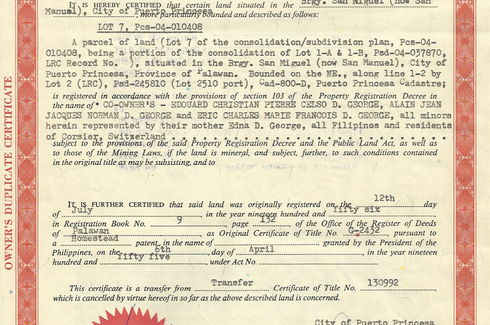 IT IS HEREBY CERTIFIED that certain land situated in the Brgy. San Miguel (now San
Manuel), City of Puerto Princesa
, more particularly bounded and described as follows:
LOT 7, Pcs-04-010408
A parcel of land (Lot 7 of the consolidation/subdivision plan, Pcs-04-
010408, being a portion of the consolidation of Lot 1-A & 1-B, Psd-04-037870,
LRC Record No. ), situated in the Brgy. San Miguel (now San Manuel), City of
Puerto Princesa, Province of Palawan. Bounded on the NE., along line 1-2 by
Lot 2 (LRC), Psd-245810 (Lot 2510 port), Cad-800-D, Puerto Princesa Cadastre;
is registered in accordance with the provisions of section 103 of the Property Registration Decree in
the name of CO-OWNER'S - EDOUARD CHRISTIAN PIERRE CELSO D. GEORGE, ALAIN JEAN
JACQUES NORMAN D. GEORGE and ERIC CHARLES MARIE FRANCOIS D. GEORGE, all minors
herein represented by their mother Edna D. George, all Filipinos and residents
of Corsier, Switzerland
subject to the provisions of the said Property Registration Decree and the Public Land Act, as well as
to those of the Mining Laws, if the land is mineral, and subject, further, to such conditions contained
in the original title as may be subsisting, and to
IT IS FURTHER CERTIFIED that said land was originally registered on the 12th day
of July in the year nineteen hundred and fifty six
in Registration Book No. 9, page 132, of the Office of the Register of Deeds
of Palawan as Original Certificate of Title No. G-2432, pursuant to
a Homestead patent, in the name of granted by the President of the
Philippines, on the 6th day of April, in the year nineteen
hundred and fifty five, under Act No.
This certificate is a transfer from Transfer Certificate of Title No. 130992
which is cancelled by virtue hereof in so far as the above described land is concerned.
City of Puerto Princesa
OWNER'S DUPLICATE CERTIFICATE